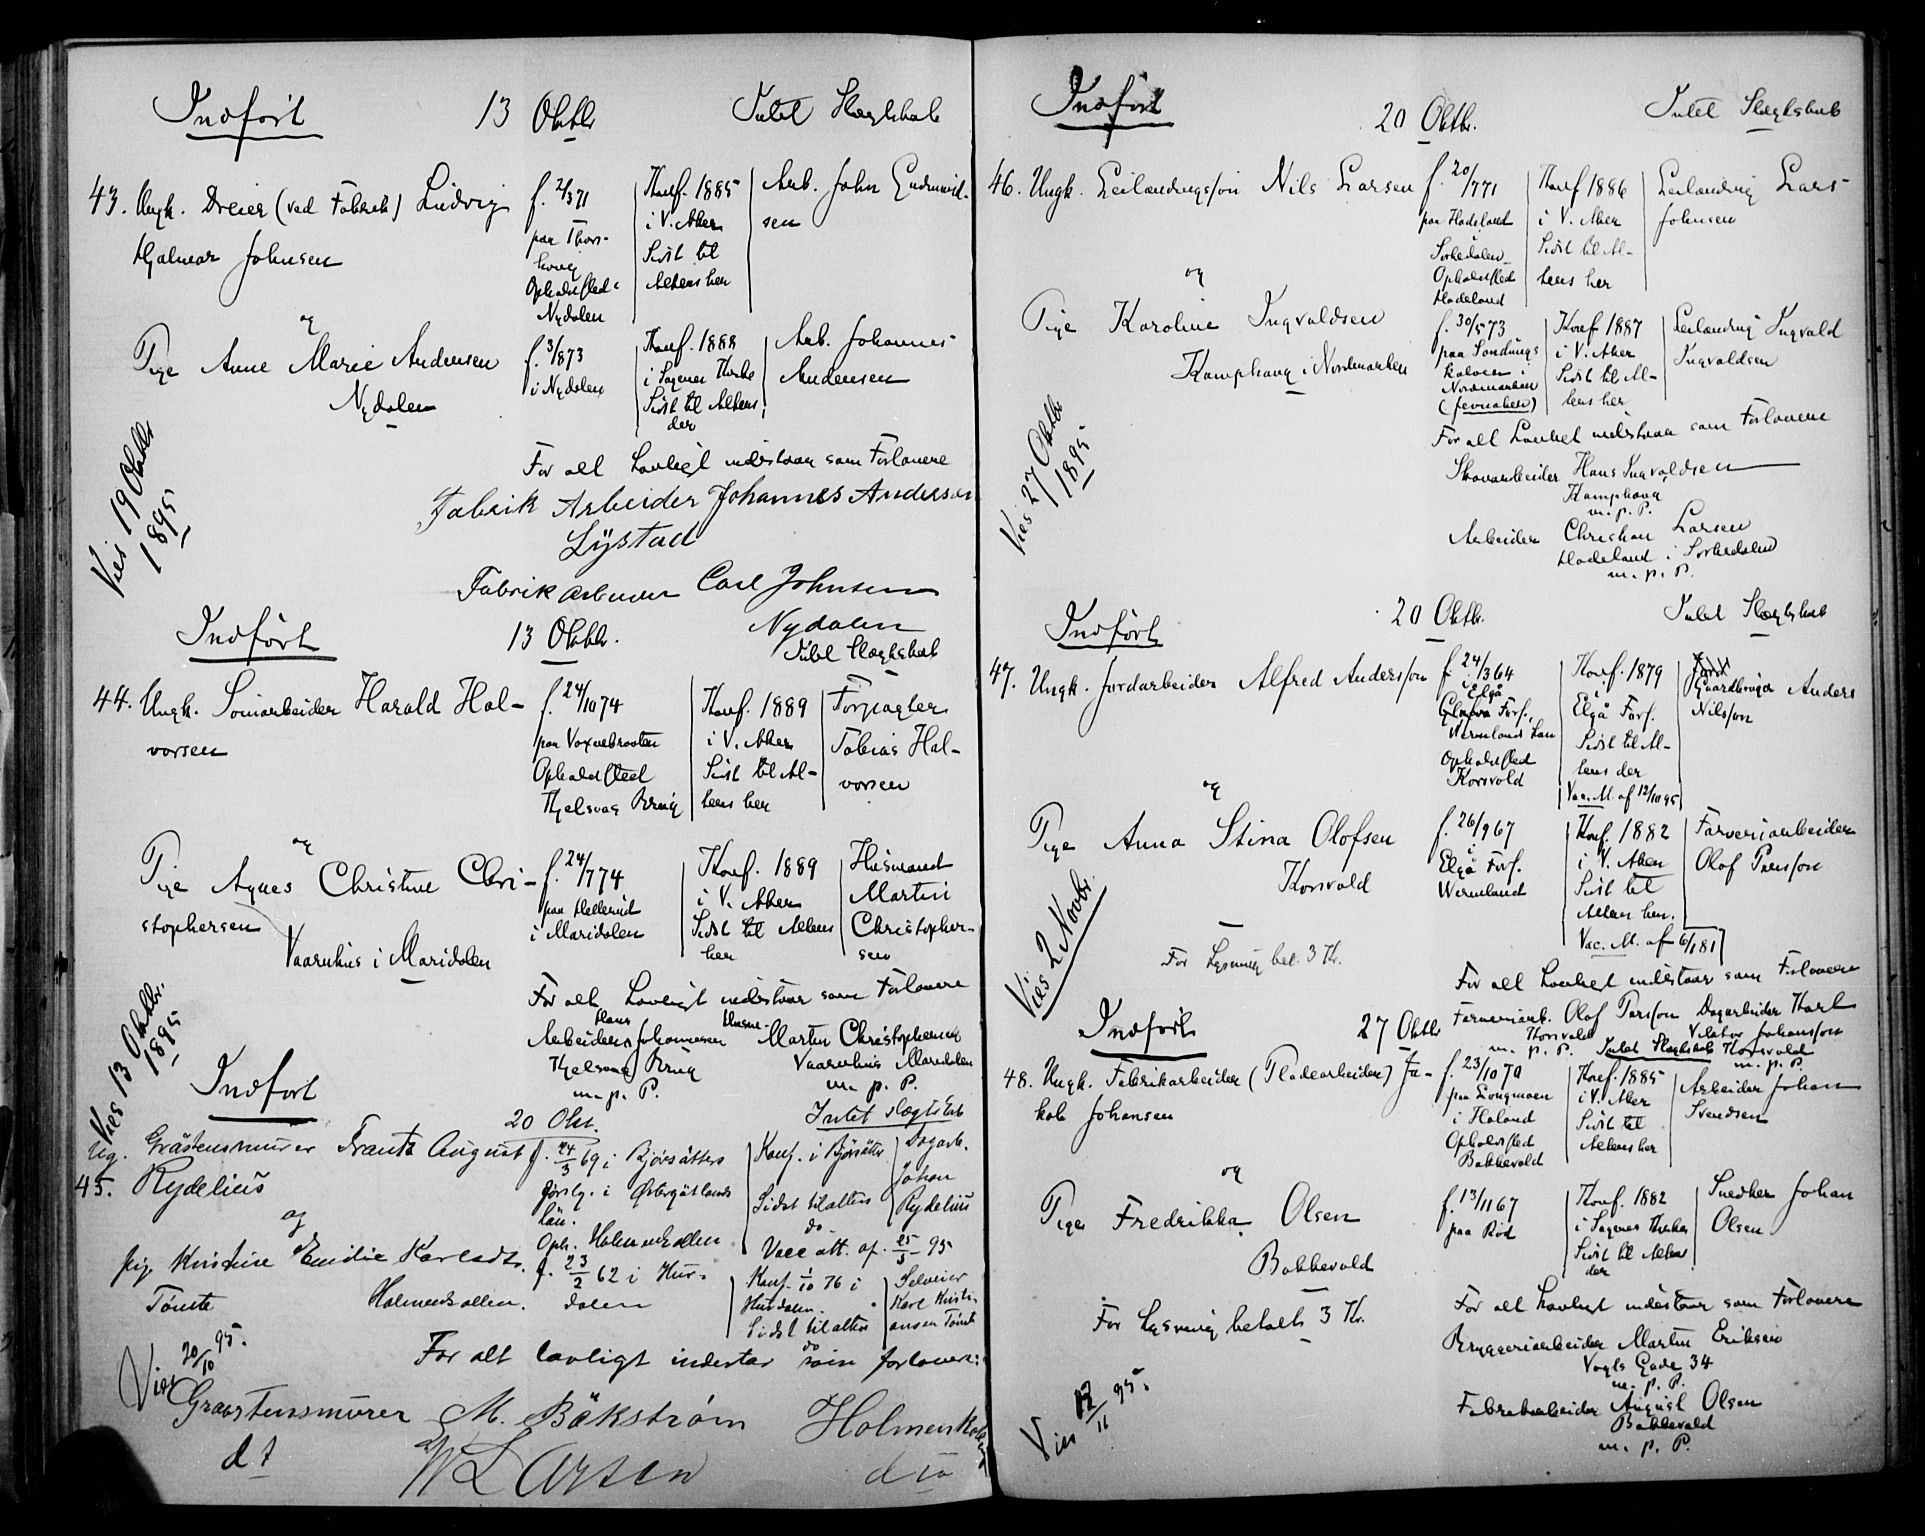 Indført 13 Oktbr Intet Slægtskab
43. Ungk. Dreier (ved Fabrik) Ludvig
Hjalmar Johnsen
f. 2/3 71
paa Thors-
houg
Opholdssted:
Nydalen
Konf. 1885
i V. Aker
Sidst til
Alters her
Arb. John Gudmund-
sen
og
Pige Anne Marie Andersen
Nydalen
f. 3/8 73
i Nydalen
Konf. 1888
i Sagenes Kirke
Sidst til Alters
der
Arb. Johannes
Andersen
Viet 19 Oktbr
1895
For alt Lovligt indestaar som Forlovere
Fabrik Arbeider Johannes Anderson
Lÿstad
Fabrik arbeider Carl Johnsen
Nydalen
Indført 13 Oktbr. Intet Slægtskab
44. Ungk. Somarbeider Harald Hal-
vorsen
f. 24/10 74
paa Voxnebraaten
Opholdssted
Kjelsaas Brug
Konf. 1889
i V. Aker
Sidst til Al-
ters her
Forpagter
Tobias Hal-
vorsen
og
Pige Agnes Christine Chri-
stophersen
Vaarnhus i Maridalen
f. 24/7 74
paa Hellerud
i Maridalen
Konf. 1889
i V. Aker
Sidst til Alters
her
Husmand
Martin
Christopher-
sen
Viet 13 Oktbr.
1895
For alt Lovligt indestaar som Forlovere
Arbeider Hans Johannesen Husm. Martin Christophersen
Kjelsaas Brug Vaarnhus Maridalen
m. p. P. m. p. P.
Indført
20 Okt. Intet slægtskab
45. Ug. Gråstensmurer Frants August
Rydelius
f. 24/3 69 i Bjørsätters
førslg. i Østergötlands
län.
Oph. Holmenkollen
Konf. i Bjørsätter
Sidst til alters
do.
Vacc att. af. 25/5 - 95
Dagarb.
Johan
Rydelius
og
Pig. Kristine Emilie Karlsdt.
Tømte Holmenkollen.
f. 23/2 62 i Hur-
dalen
Konf. 1/10 76 i
Hurdalen.
Sidst til alters
do
Selveier
Karl Kristi-
ansen Tømte
Viet 20/10 95.
For alt lovligt indestar som forlovere:
Graastensmurer M. Bäkstrøm Holmenkollen
dt W Larsen do
Indført 20 Oktbr. Intet Slægtskab
46. Ungk. Leilændingssøn Nils Larsen
f. 20/7 71
paa Hadeland
i
Sørkedalen
Opholdssted
Hadeland
Konf 1886
i V. Aker
Sidst til Al-
ters her
Leilænding Lars
Johnsen
og
Pige Karoline Ingvaldsen
Kamphaug i Nordmarken
f. 30/5 73
paa Sandungs
kalven i
Nordmarken
(Jevnaker)
Konf 1887
i V. Aker
Sidst til Al-
ters her
Leilænding Ingvald
Ingvaldsen
Viet 27 Oktbr
1895
For alt Lovligt indestaar som Forlovere
Skovarbeider Hans Ingvaldsen
Kamphaug
m. p. P.
Arbeider Christian Larsen
Hadeland i Sørkedalen
m. p. P.
Indført 20 Oktbr. Intet Slægtskab
47. Ungk. Jordarbeider Alfred Andersson
f 24/3 64
i Elgå
Glafva Förs.
Wermlands Län
Opholdssted
Korsvold
Konf. 1879
i
Elgå Förs.
Sidst til Al-
ters der
Vac. M. af 12/10 95
Gaardbruger Anders
Nilsson
og
Pige Anna Stina Olofsen
Korsvold
f. 26/9 67
i
Elgå Förs.
Wermland
Konf. 1882
i V. Aker
Sidst til
Alters her.
Vac. M. af 6/1 81
Farveriarbeider
Olof Persson
Viet 2 Novbr.
For Lysning bet. 3 Kr.
For alt Lovligt indestaar som Forlovere
Farveriarb. Olof Persson Dagarbeider Karl
Korsvold Viktor Johansson
m. p. P. Korsvold
m. p. P.
Indført 27 Oktbr Intet Slægtskab
48. Ungk. Fabrikarbeider (Pladearbeider) Ja-
kob Johansen
f. 23/10 70
paa Longmoen
i Høland
Opholdssted
Bakkevold
Konf. 1885
i V. Aker
Sidst til
Alters her
Arbeider Johan
Svendsen
og
Pige Fredrikka Olsen
Bakkevold
f. 13/11 67
paa Rød
Konf. 1882
i Sagenes Kirke
Sidst til Alters
der
Snedker Johan
Olsen
For Lysning betalt 3 Kr.
For alt Lovligt indestaar som Forlovere
Bryggeriarbeider Martin Eriksen
Vogts Gade 34
m. p. P.
Fabrikarbeider August Olsen
Bakkevold
m. p. P.